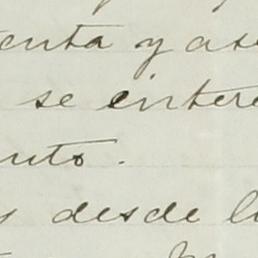 enta y as
se intere
nto.
s desde l